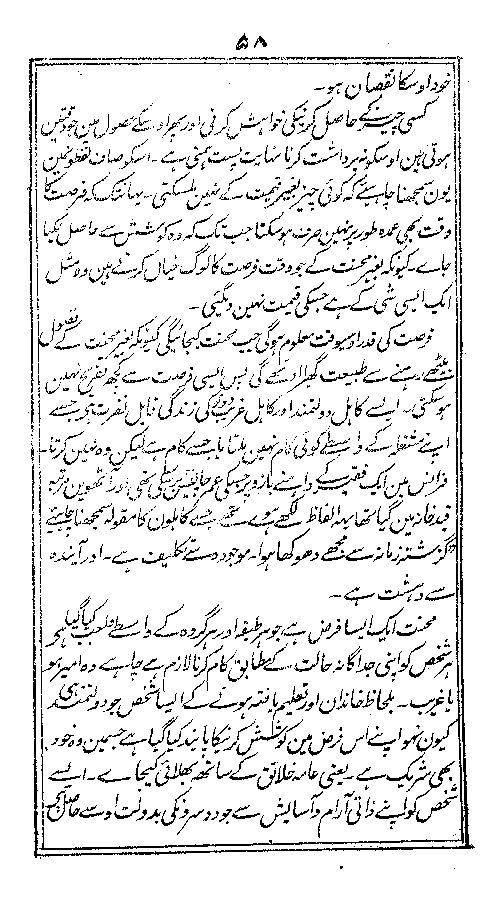 ۵۸
خود اوسکا نقصان ہو۔
کسی چیز کے حاصل کرنیکی خواہش کرنی اور پھر اوسکے حصول مین جو دقتین
ہوتی ہین اوسکو نہ برداشت کرنا نہایت پست ہمتی ہے۔ اسکو صاف لفظونمین
یون سمجھنا چاہئے کہ کوئی چیز بغیر قیمت کے نہین ملسکتی۔ یہانتک کہ فرصت کا
وقت بھی عمدہ طور پر نہین صرف ہو سکتا جب تک کہ وہ کوشش سے حاصل نکیا
جاے۔ کیونکہ بغیر محنت کے جو وقت فرصت کا لوگ خیال کرتے ہین وہ مثل
ایک ایسی شی کے ہے جسکی قیمت نہین دیگئی۔
فرصت کی قدر اوسیوقت معلوم ہوگی جب محنت کیجائیگی کیونکہ بغیر محنت کے فضول
بیٹھے رہنے سے طبیعت گھبرا اوٹھے گی پس ایسی فرصت سے کچھ تفریح نہین
ہو سکتی۔ ایسے کاہل دولتمند اور کاہل غریب دونون کی زندگی قابل نفرت ہی جسے
اپنے شغل کے واسطے کوئی کام نہین ملتا یا جسے کام ہے لیکن وہ نہین کرتا۔
فرانس مین ایک فقیر کے داہنے بازو پر جسکی عمر چالیس برسکی تھی اور آٹھوین مرتبہ
قید خانہ مین گیا تھا یہ الفاظ لکھے ہوے تھے جسے کاہلون کا مقولہ سمجھنا چاہئے
"گزشتہ زمانہ سے مجھے دھوکھا ہوا۔ موجودہ سے تکلیف ہے۔ اور آیندہ
سے دہشت ہے۔
محنت ایک ایسا فرض ہے جو ہر طبقہ اور ہر گروہ کے واسطے واجب کیا گیا ہر
ہر شخص کو اپنی جداگانہ حالت کے مطابق کام کرنا لازم ہے چاہے وہ امیر ہو
یا غریب۔ بلحاظ خاندان اور تعلیم یافتہ ہونے کے ایسا شخص جو دولتمند ہی
کیون نہو اپنے اس فرض مین کوشش کرنیکا پابند کیا گیا ہے جسمین وہ خود
بھی شریک ہے۔ یعنی عامہ خلائق کے ساتھ بھلائی کیجاے۔ ایسے
شخص کو اپنے ذاتی آرام و آسایش سے جو دوسرونکی بدولت اوسے حاصل ہی